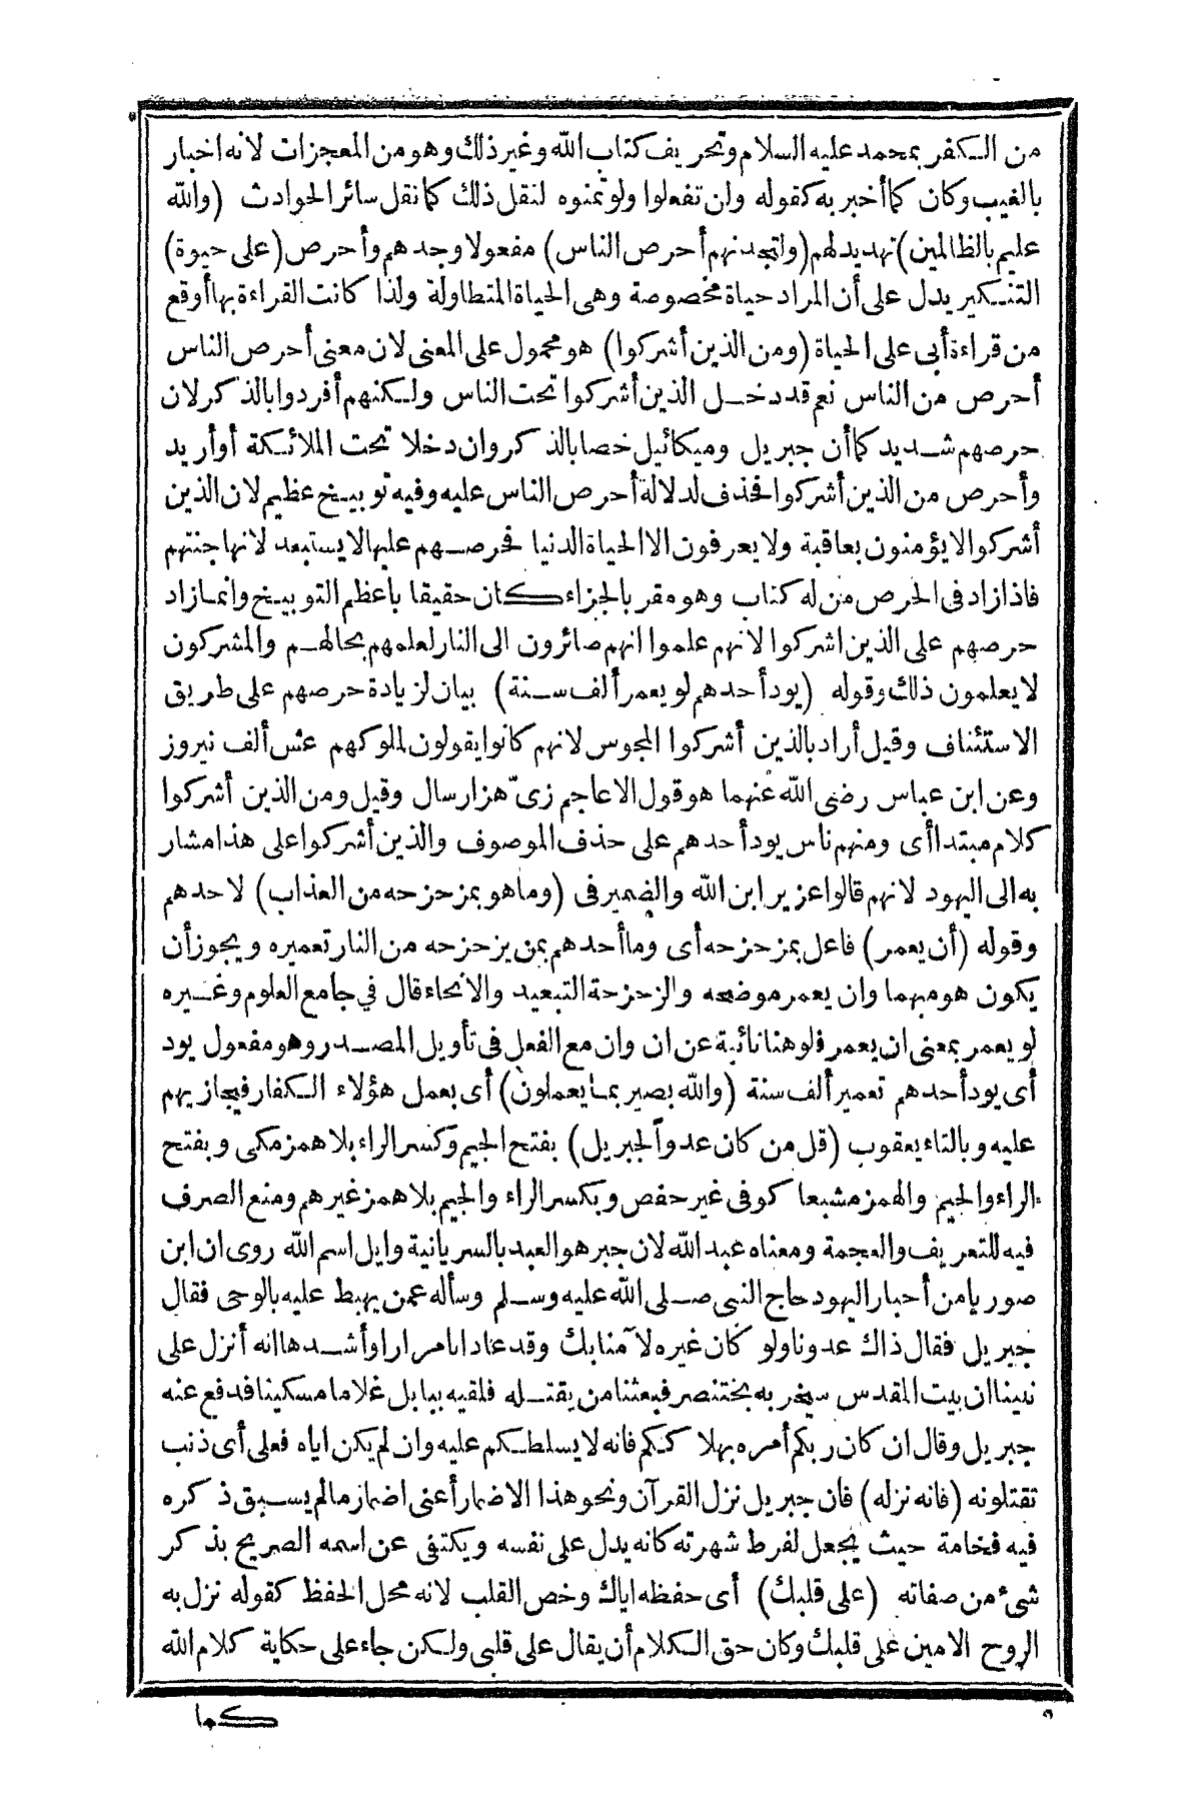 من الكفر بمحمد عليه السلام وتحريف كتاب الله وغير ذلك وهو من المعجزات لانه اخبار
بالغيب وكان كما أخبر به كقوله ولن تفعلوا ولو تمنوه لنقل ذلك كما نقل سائر الحوادث (والله
عليم بالظالمين) تهديد لهم (ولتجدنهم أحرص الناس) مفعولا وجد هم وأحرص (على حيوة)
التنكير يدل على أن المراد حياة مخصوصة وهى الحياة المتطاولة ولذا كانت القراءة بها أوقع
من قراءة أبى على الحياة (ومن الذين أشركوا) هو محمول على المعنى لان معنى أحرص الناس
أحرص من الناس نعم قد دخل الذين أشركوا تحت الناس ولكنهم أفردوا بالذكر لان
حرصهم شديد كما أن جبريل وميكائيل خصا بالذكر وان دخلا تحت الملائكة أو أريد
وأحرص من الذين أشركوا فحذف لدلالة أحرص الناس عليه وفيه توبيخ عظيم لان الذين
أشركوا لا يؤمنون بعاقبة ولا يعرفون الا الحياة الدنيا فحرصهم عليها لا يستبعد لانها جنتهم
فاذا زاد فى الحرص من له كتاب وهو مقر بالجزاء كان حقيقا باعظم التوبيخ وانما زاد
حرصهم على الذين اشركوا لانهم علموا انهم صائرون الى النار لعلمهم بحالهم والمشركون
لا يعلمون ذلك وقوله (يود أحدهم لو يعمر ألف سنة) بيان لزيادة حرصهم على طريق
الاستئناف وقيل أراد بالذين أشركوا المجوس لانهم كانوا يقولون لملوكهم عش ألف نيروز
وعن ابن عباس رضى الله عنهما هو قول الاعاجم زى هزار سال وقيل ومن الذين أشركوا
كلام مبتدا أى ومنهم ناس يود أحدهم على حذف الموصوف والذين أشركوا على هذا مشار
به الى اليهود لانهم قالوا عزير ابن الله والضمير فى (وما هو بمزحزحه من العذاب) لاحدهم
وقوله (أن يعمر) فاعل بمزحزحه أى وما أحدهم بمن يزحزحه من النار تعميره ويجوز أن
يكون هو مبهما وان يعمر موضحه والزحزحة التبعيد والانحاء قال في جامع العلوم وغيره
لو يعمر بمعنى ان يعمر فلو هنا نائبة عن ان وان مع الفعل فى تأويل المصدر وهو مفعول يود
أى يود أحدهم تعمير ألف سنة (والله بصير بما يعملون) أى بعمل هؤلاء الكفار فيجازيهم
عليه وبالتاء يعقوب (قل من كان عدوا لجبريل) بفتح الجيم وكسر الراء بلا همز مكى وبفتح
الراء والجيم والهمز مشبعا كوفى غير حفص وبكسر الراء والجيم بلا همز غيرهم ومنع الصرف
فيه للتعريف والعجمة ومعناه عبد الله لان جبر هو العبد بالسريانية وايل اسم الله روى ان ابن
صوريا من أحبار اليهود حاج النبى صلى الله عليه وسلم وسأله عمن يهبط عليه بالوحى فقال
جبريل فقال ذاك عدونا ولو كان غيره لآمنا بك وقد عادانا مرارا وأشدها انه أنزل على
نبينا ان بيت المقدس سيخربه بختنصر فبعثنا من يقتله فلقيه ببابل غلاما مسكينا فدفع عنه
جبريل وقال ان كان ربكم أمره بهلاككم فانه لا يسلطكم عليه وان لم يكن اياه فعلى أى ذنب
تقتلونه (فانه نزله) فان جبريل نزل القرآن ونحو هذا الاضمار أعنى اضمار ما لم يسبق ذكره
فيه فخامة حيث يجعل لفرط شهرته كانه يدل على نفسه ويكتفى عن اسمه الصريح بذكر
شئ من صفاته (على قلبك) أى حفظه اياك وخص القلب لانه محل الحفظ كقوله نزل به
الروح الامين على قلبك وكان حق الكلام أن يقال على قلبى ولكن جاء على حكاية كلام الله
كما